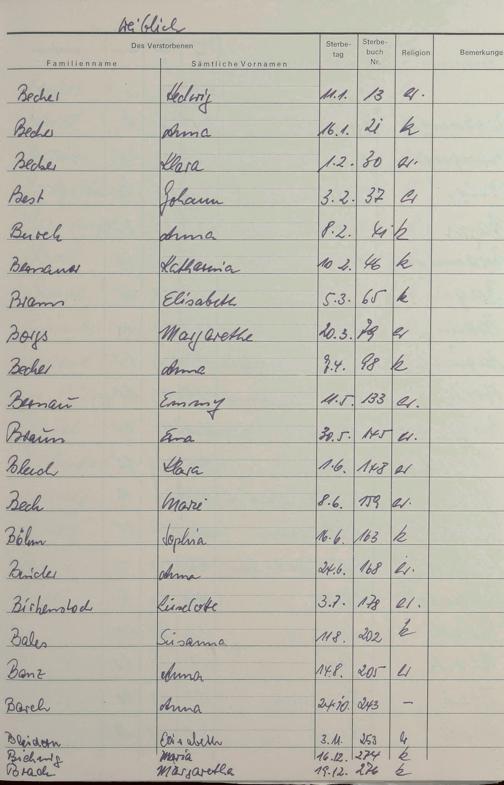 weiblich
Des Verstorbenen Sterbe-tag Sterbe-buch Nr. Religion Bemerkunge
Familienname Sämtliche Vornamen
Becher Hedwig 11.1. 13 ev.
Becher Anna 16.1. 21 k
Becher Klara 1.2. 30 ev.
Best Johann 3.2. 37 ev
Burch Anna 8.2. 41 k
Bernauer Katharina 10.2. 46 k
Braun Elisabeth 5.3. 65 k
Borgs Margarethe 20.3. 79 ev
Becher Anna 7.4. 98 k
Bernau Emmy 11.5. 133 ev.
Braun Eva 30.5. 145 ev.
Klara 1.6. 148 ev
Bech Marie 8.6. 159 ev.
Böhm Sophia 16.6. 163 k
Anna 24.6. 168 ev.
Birkenstock Lieselotte 3.7. 178 ev.
Bales Susanna 11.8. 202 k
Banz Anna 14.8. 205 ev
Barch Anna 24.10. 243 –
Elisabeth 3.11. 253
Maria 16.12. 274 k
Brach Margaretha 19.12. 276 k